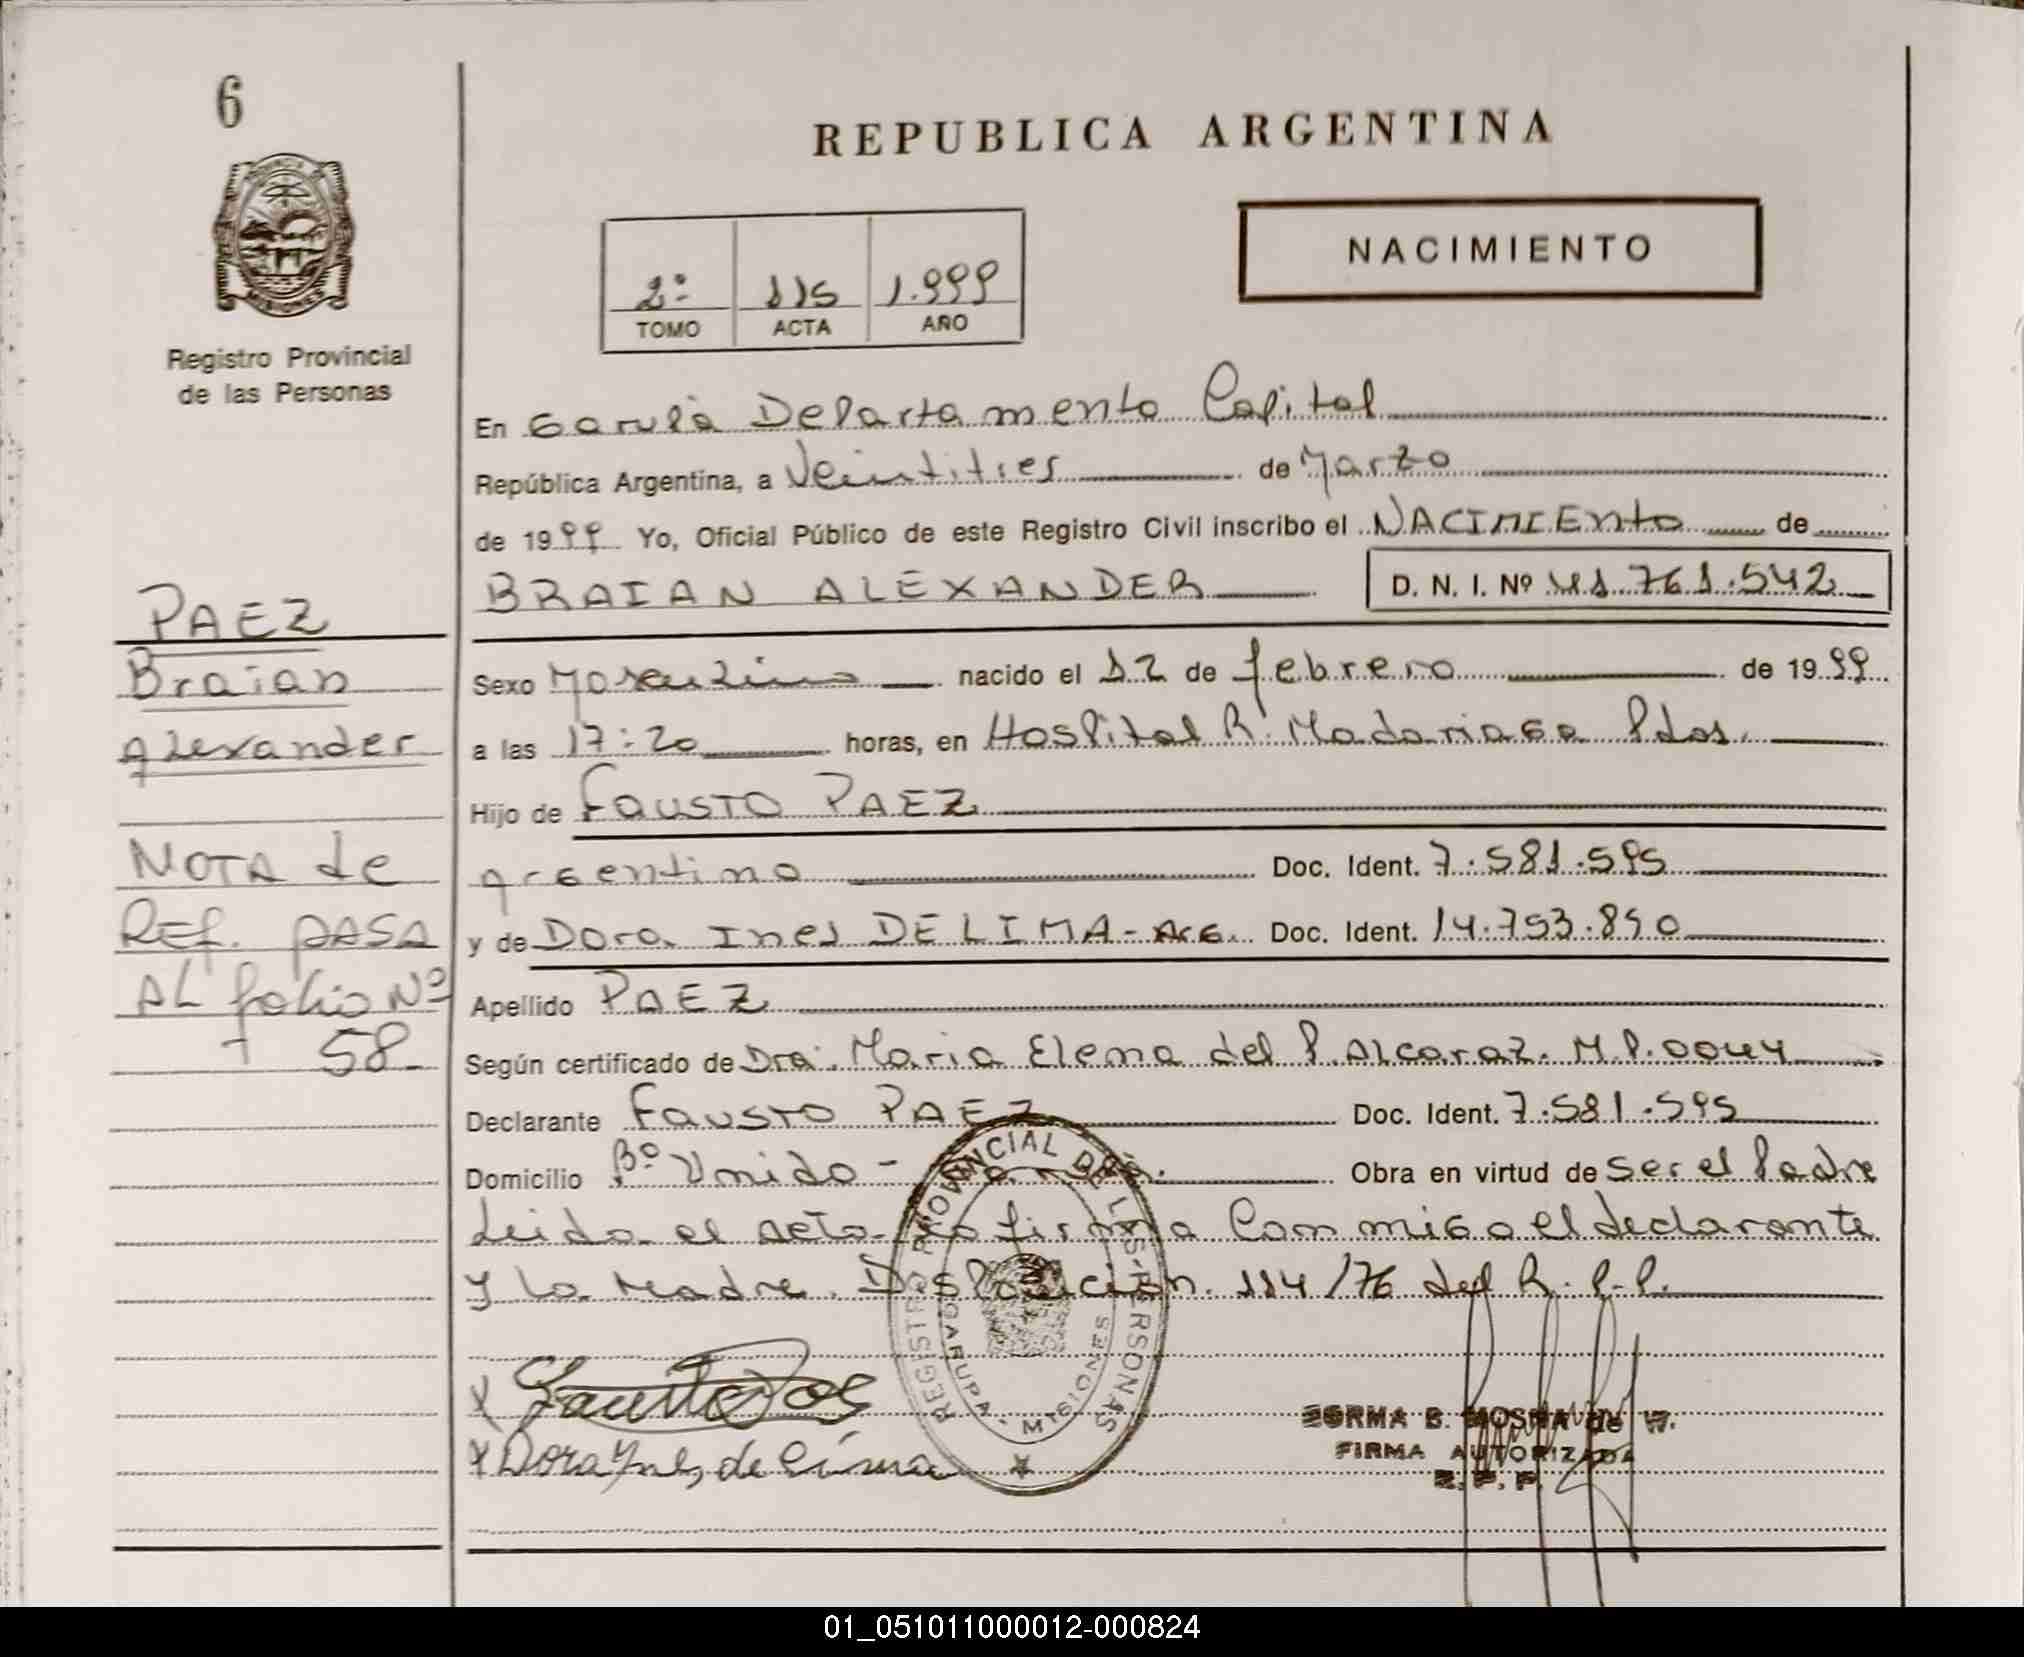 6
REPUBLICA ARGENTINA
NACIMIENTO
2º 115 1.999
TOMO ACTA AÑO
Registro Provincial
de las Personas
En Garupá Departamento Capital
República Argentina, a Veintitres de Marzo
de 1999 Yo, Oficial Público de este Registro Civil inscribo el NACIMIENTO de
BRAIAN ALEXANDER D. N. I. Nº 41.761.542
PAEZ
Braian
Alexander
NOTA de
REF. PASA
AL folio Nº
58
Sexo Masculino nacido el 12 de febrero de 1999
a las 17:20 horas, en Hospital R. Madariaga Pdas.
Hijo de Fausto PAEZ
argentino Doc. Ident. 7.581.595
y de Dora Ines DE LIMA - Arg. Doc. Ident. 14.753.890
Apellido PAEZ
Según certificado de Dra. Maria Elena del P. Alcaraz. M.P. 0044
Declarante Fausto PAEZ Doc. Ident. 7.581.595
Domicilio Bº Unido - Obra en virtud de ser el Padre
Leida el acta la firma Conmigo el declarante
y la Madre. Disposición 114/76 del R.P.P.
REGISTRO PROVINCIAL DE LAS PERSONAS
GARUPA - MISIONES
Dora Ynes de Lima
B. MOSNA de W.
FIRMA AUTORIZADA
R. P. P.
01_051011000012-000824